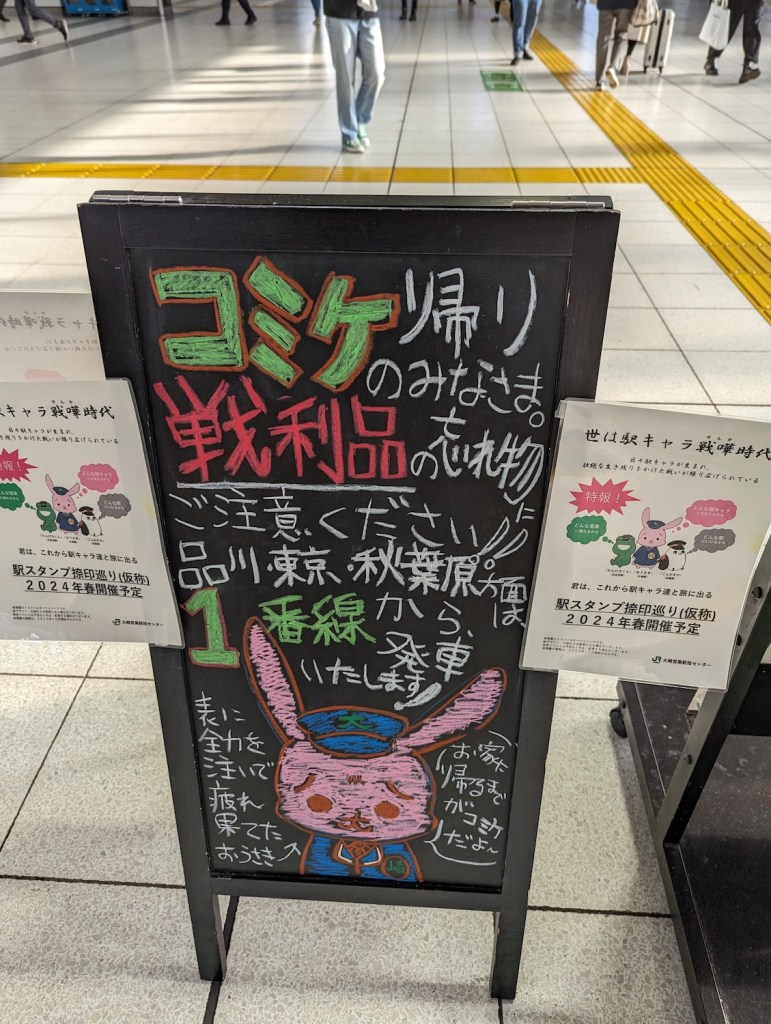 コミケ帰り
のみなさま。
戦利品の忘れ物に
ご注意ください!!
品川・東京・秋葉原方面は、
1番線から、発車
いたします!!
表に
全力を
注いで
疲れ
果てた
おうさき
お家に
帰るまで
がコミケ
だよ〜
大
崎
駅キャラ戦嘩時代
せんか
日々駅キャラが生まれ、
き残りをかけた戦いが繰り広げられている
特報!
どんな駅キャラ
どんな駅
君は、これから駅キャラ達と旅に出る
駅スタンプ捺印巡り(仮称)
2024年春開催予定
JR 大崎営業統括センター
世は駅キャラ戦嘩時代
せんか
日々駅キャラが生まれ、
壮絶な生き残りをかけた戦いが繰り広げられている
特報!
どんな電車
どんな駅キャラ
どんな駅
君は、これから駅キャラ達と旅に出る
駅スタンプ捺印巡り(仮称)
2024年春開催予定
JR 大崎営業統括センター